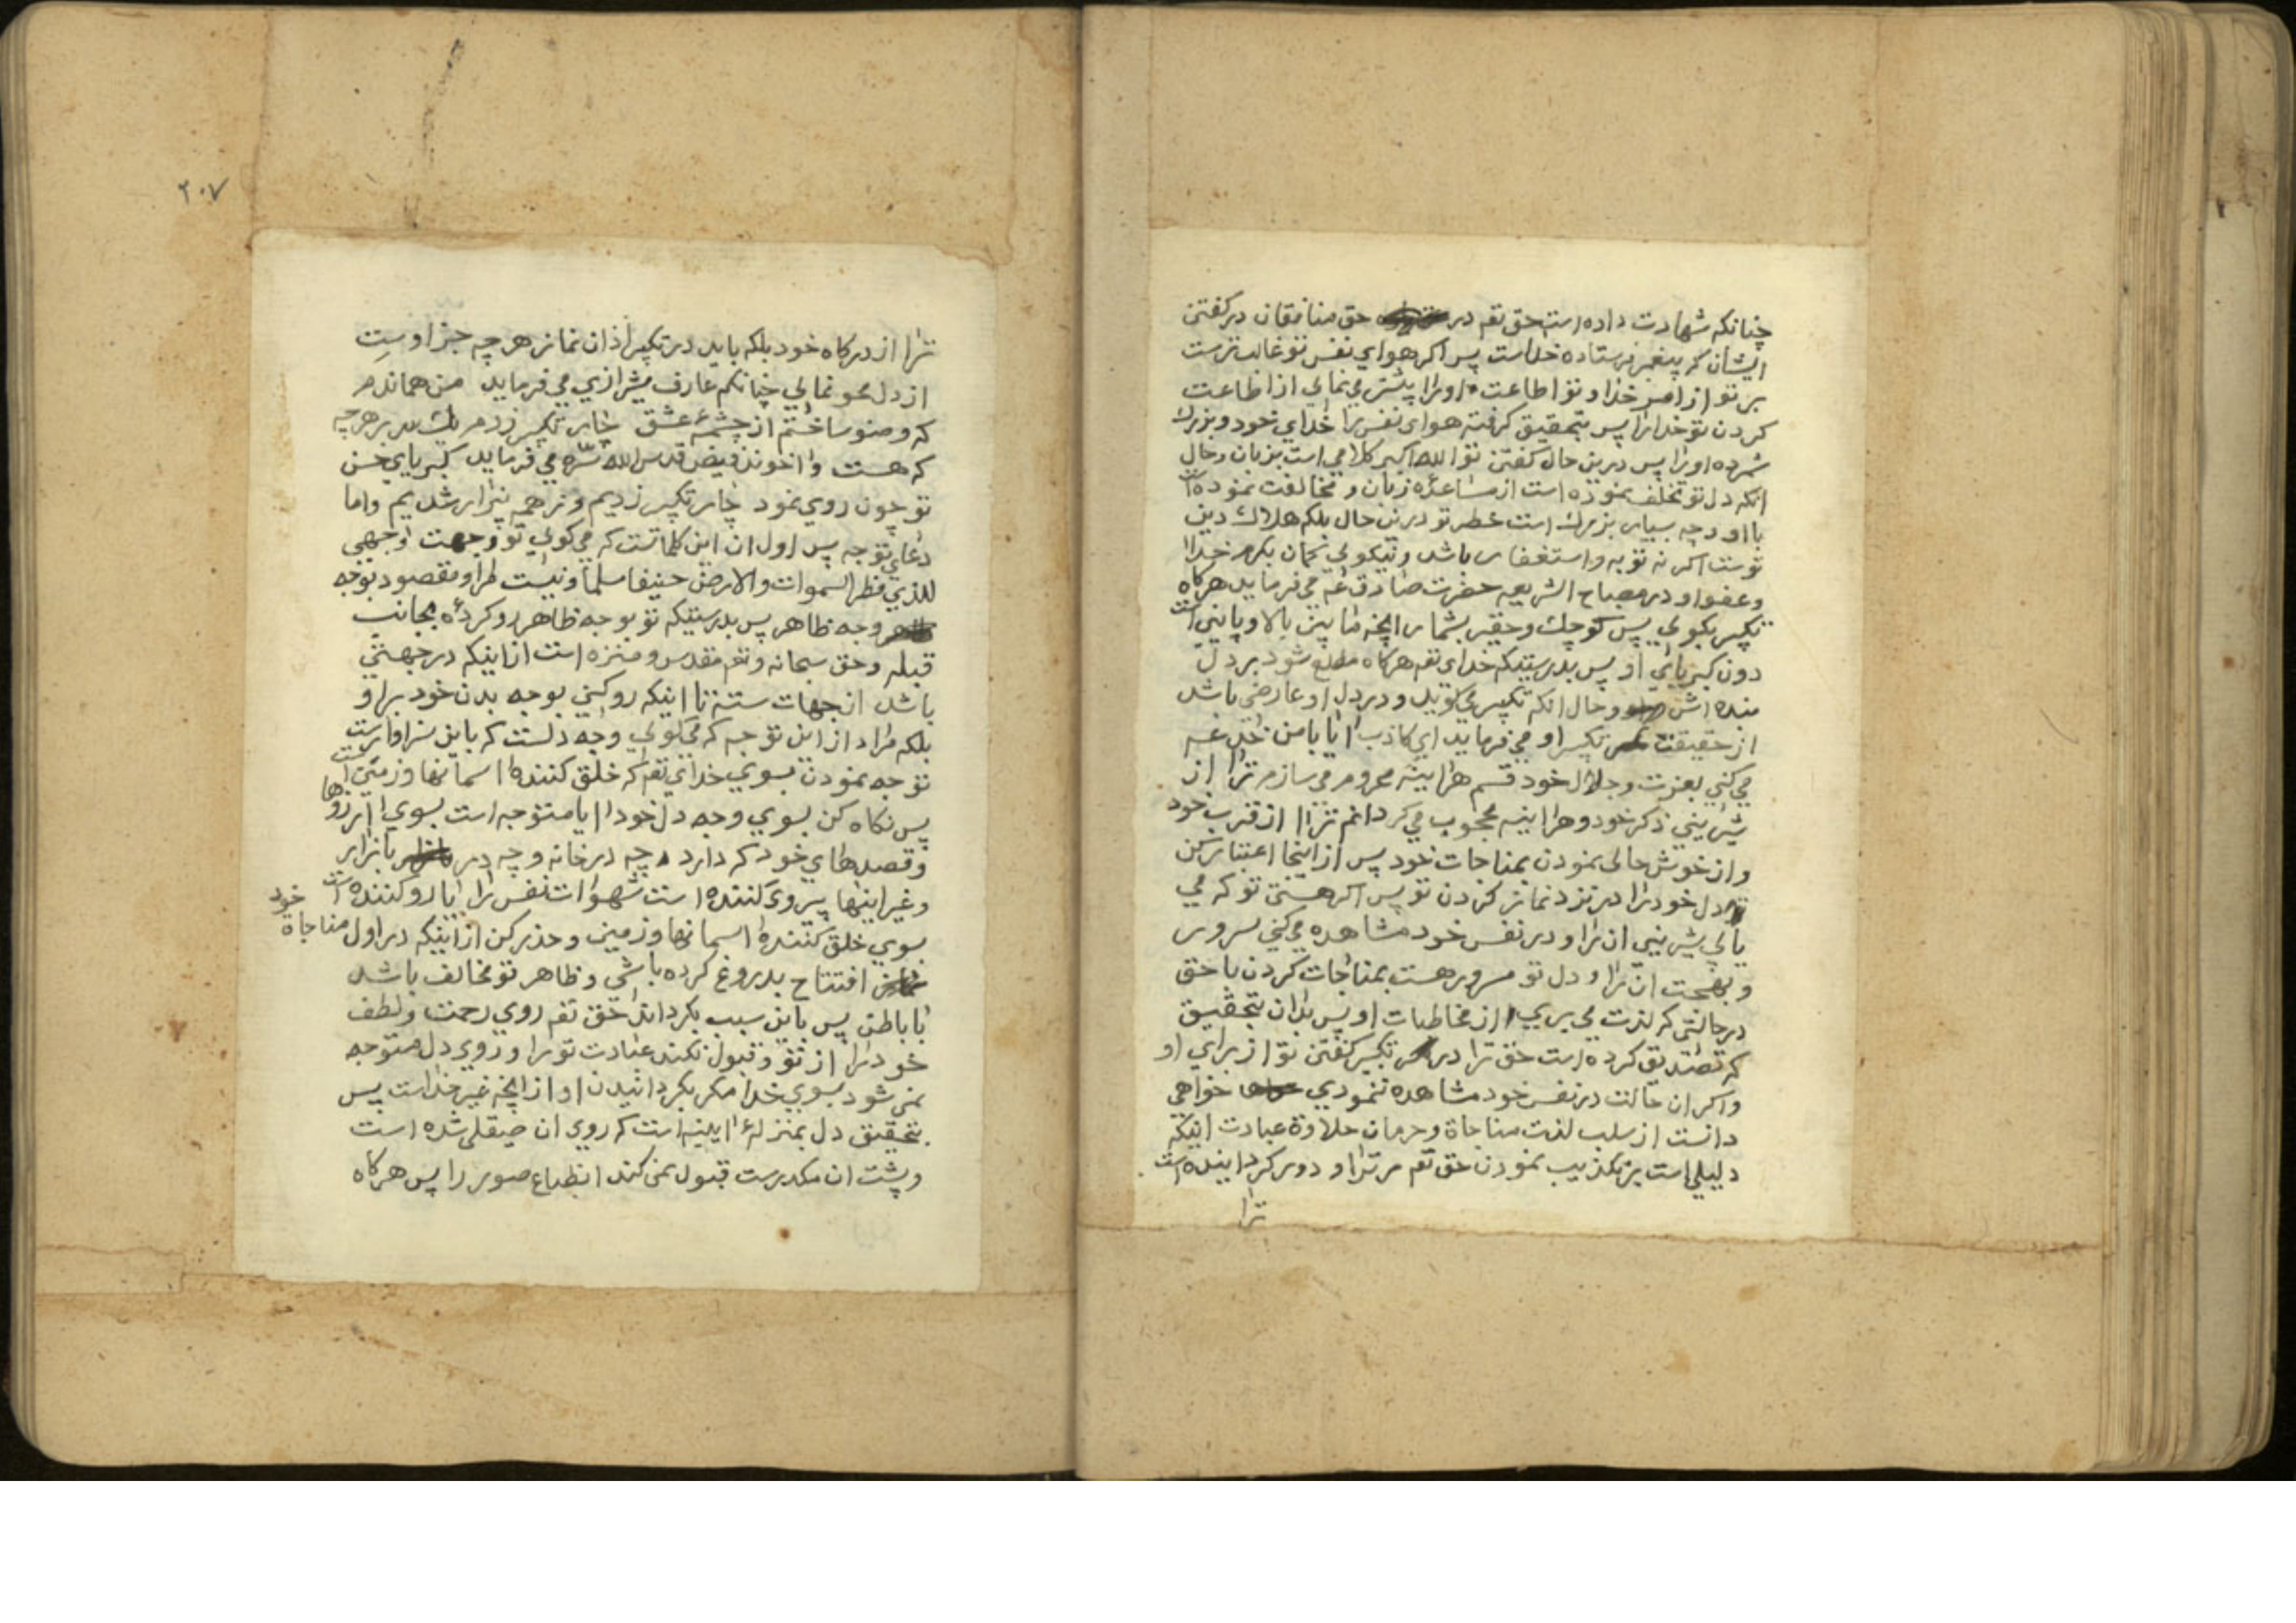 چنانکه شهادت داده است حق تعم در حق منافقان در کفتن
ایشان که پیغمبر فرستاده خداست پس اکر هوای نفس تو غالب ترست
بر تو از امر خدا و تو اطاعت او را پیشتر می نمایی از اطاعت
کردن تو خدا را پس بتحقیق کرفته هوای نفس را خدای خود و بزرك
شمرده او را پس درین حال کفتن تو الله اکبر کلامی است بزبان و حال
انکه دل تو تخلف نموده است از مساعده زبان و مخالفت نموده است
با او و چه بسیار بزرك است خطر تو درین حال بلکه هلاك دین
توست اکر نه توبه و استغفار باشد و نیکویی کمان بکرم خدا
و عفو او و در مصباح الشریعه حضرت صادق عم می فرماید هرکاه
تکبیر بکویی پس کوچك و حقیر بشمار انچه ما بین بالا و پائین است
دون کبریای او پس بدرستیکه خدای تعم هرکاه مطلع شود بر دل
بنده اش و حال انکه تکبیر می کوید و در دل او عارضی باشد
از حقیقت تکبیر او می فرماید ای کاذب ایا با من خدعه
می کنی بعزت و جلال خود قسم هراینه محروم می سازم ترا از
شیرینی ذکر خود و هراینه محجوب می کردانم ترا از قرب خود
و از خوش حالی نمودن بمناجات خود پس از اینجا اعتبار کن
دل خود را در نزد نماز کردن تو پس اکر هستی تو که می
یابی شیرینی ان را و در نفس خود مشاهده می کنی سرور
و بهجت ان را و دل تو مسرور هست بمناجات کردن با حق
در حالتی که لذت می بری از مخاطبات او پس بدان بتحقیق
که تصدیق کرده است حق ترا در تکبیر کفتن تو از برای او
و اکر ان حالت در نفس خود مشاهده ننمودی خواهی
دانست از سلب لذت مناجاة و حرمان حلاوة عبادت اینکه
دلیلی است بر تکذیب نمودن حق تعم مر ترا و دور کرداینده است
ترا
۲۰۷
ترا از درکاه خود بلکه باید در تکبیر اذان نماز هر چه جز اوست
از دل محو نمایی چنانکه عارف شیرازی می فرماید من هماندم
که وضو ساختم از چشمهٔ عشق چار تکبیر زدم یك سر بر هر چه
که هست و اخوند فیض قدس الله سره می فرماید کبریای حسن
تو چون روی نمود چار تکبیر زدیم و ز همه بیزار شدیم و اما
دعای توجه پس اول ان این کلماتست که می کویی تو وجهت وجهی
للذی فطر السموات والارض حنیفا مسلما و نیست مراو مقصود بوجه
وجه ظاهر پس بدرستیکه تو بوجه ظاهر رو کردهٔ بجانب
قبله و حق سبحانه و تعم مقدس و منزه است از اینکه در جهتی
باشد از جهات سته تا اینکه رو کنی بوجه بدن خود بر او
بلکه مراد از این توجه که می کویی وجه دلست که باین سزاوارست
توجه نمودن بسوی خدای تعم که خلق کنندهٔ اسمانها و زمین است
پس نکاه کن بسوی وجه دل خود ایا متوجه است بسوی ارزوها
و قصدهای خود که دارد چه در خانه و چه در بازار
و غیر اینها پیروی کننده است شهوات نفس را ایا رو کننده است
بسوی خلق کنندهٔ اسمانها و زمین و حذر کن از اینکه در اول مناجاة خود
افتتاح بدروغ کرده باشی و ظاهر تو مخالف باشد
با باطن پس باین سبب بکرداند حق تعم روی رحمت و لطف
خود را از تو و قبول نکند عبادت تو را و روی دل متوجه
نمی شود بسوی خدا مکر بکردانیدن او از انچه غیر خداست پس
بتحقیق دل بمنزلهٔ ایینه است که روی ان صیقلی شده است
و پشت ان مکدرست قبول نمی کند انطباع صور را پس هرکاه